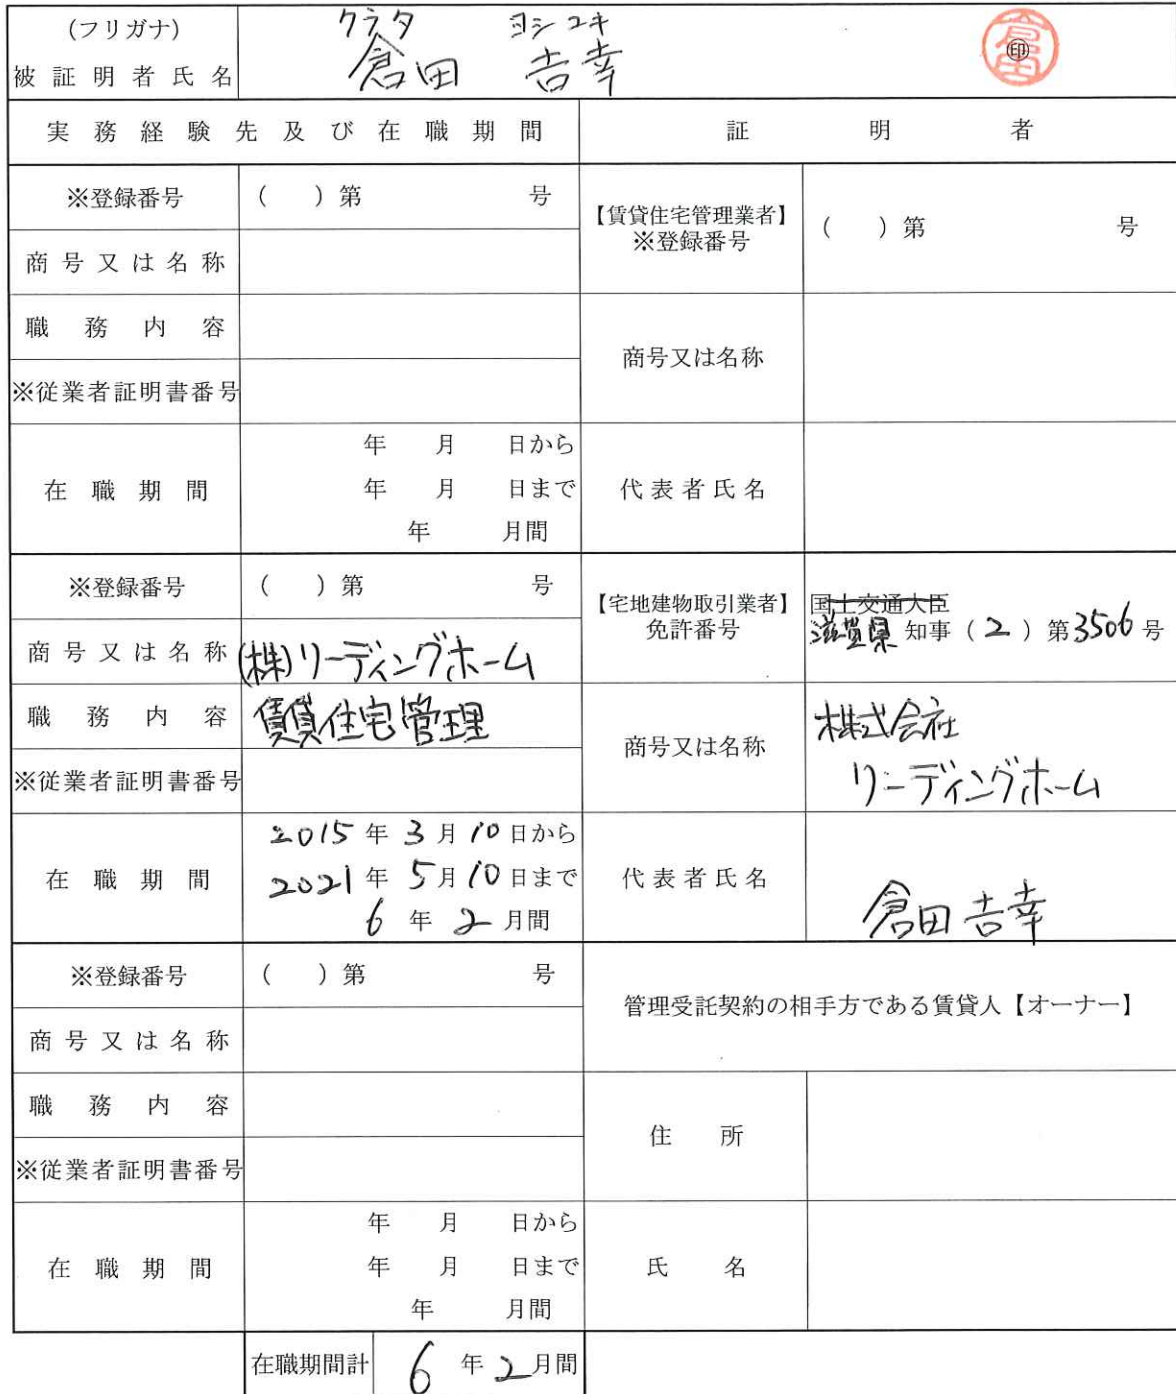 (フリガナ) クラタ ヨシユキ
被証明者氏名 倉田 吉幸 印
実務経験先及び在職期間 証明者
※登録番号 ( )第 号
【賃貸住宅管理業者】
※登録番号
( )第 号
商号又は名称
職務内容
商号又は名称
※従業者証明書番号
在職期間
年 月 日から
年 月 日まで
年 月間
代表者氏名
※登録番号 ( )第 号
【宅地建物取引業者】
免許番号
国土交通大臣
滋賀県 知事 (2) 第3506号
商号又は名称 (株)リーディングホーム
職務内容 賃貸住宅管理
商号又は名称
株式会社
リーディングホーム
※従業者証明書番号
在職期間
2015年3月10日から
2021年5月10日まで
6年2月間
代表者氏名
倉田吉幸
※登録番号 ( )第 号
管理受託契約の相手方である賃貸人【オーナー】
商号又は名称
職務内容
住所
※従業者証明書番号
在職期間
年 月 日から
年 月 日まで
年 月間
氏名
在職期間計 6年2月間